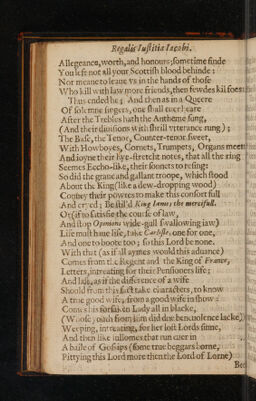 Regalis Iustitia Iacobi.
Allegeance, worth, and honours; sometime finde
You left not all your Scottish blood behinde:
Nor meane to leaue vs in the hands of those
Who kill with law more friends, then fewdes kil foes:
Thus ended he; And then as in a Queere
Of solemne singers, one shall euer heare
After the Trebles hath the Antheme sung,
(And their diuisions with shrill vtterance rung)
The Base, the Tenor, Counter-tenor sweet,
With Howboyes, Cornets, Trumpets, Organs meet
And ioyne their lyp-stretcht notes, that all the ring
Seemes Eccho-like, their sonnets to resing:
So did the graue and gallant troope, which stood
About the King (like a dew-dropping wood)
their powres to make this consort full
And cryed; Be stil'd King Iames, the mercifull.
Or (if to satisfie the course of law,
And stop Opinions wide-gull swallowing iaw)
Life must haue life, take Carliste, one for one,
And one to boote too; so this Lord be none.
With that (as if all aymes would this aduance)
Comes from the Regent and the King of France,
Letters, intreating for their Pensioners life;
And last, as if the difference of a wife
Should from this fact take characters, to know
A true good wife, from a good wife in show:
Comes this Lady all in blacke,
(Whose youth from him did due beneuolence lacke)
Weeping, intreating, for her lost Lords sinne,
And then like iust run euer in
A baise of Gossips (some true beggars borne,
Pittying this Lord more then the Lord of Lorne)